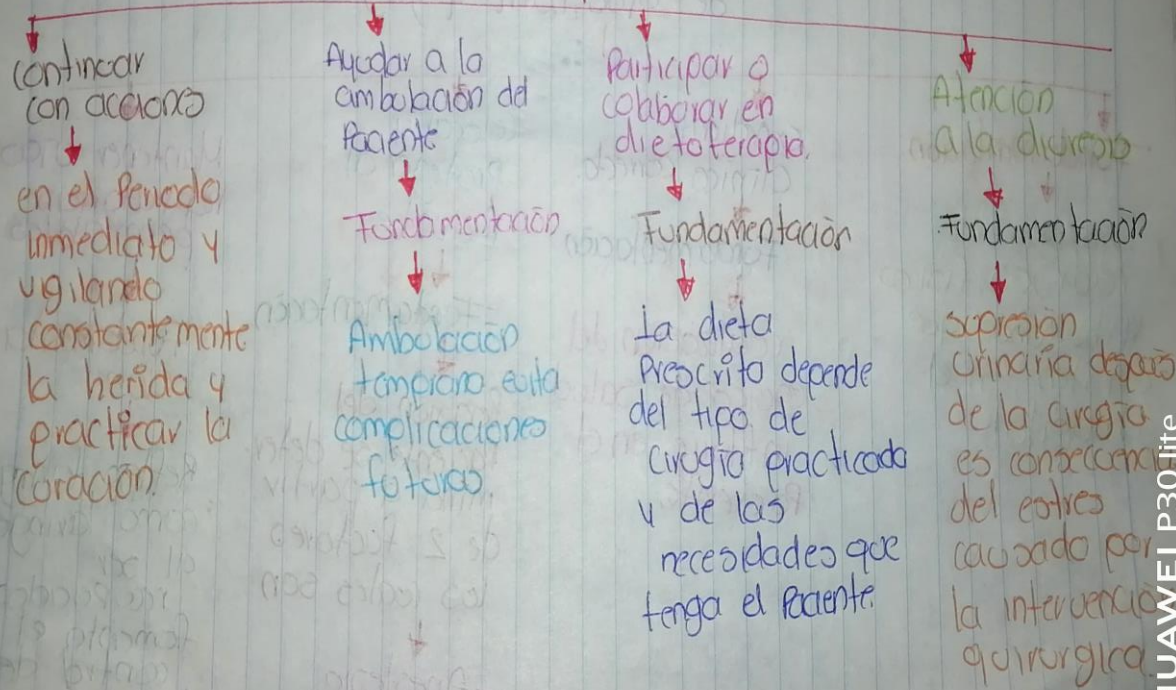 Continuar
con acciones
en el Periodo
inmediato y
vigilando
constantemente
la herida y
practicar la
coración.
Ayudar a la
ambulación del
Paciente
Fundamentación
Ambulación
temprano evita
complicaciones
futuras.
Participar o
colaborar en
dietoterapia.
Fundamentación
La dieta
Prescrito depende
del tipo de
Cirugía practicada
y de las
necesidades que
tenga el Paciente.
Atención
a la diuresis
Fundamentación
supresión
urinaria después
de la cirugía
es consecuencia
del estres
causado por
la intervención
quirurgica
HUAWEI P30 lite